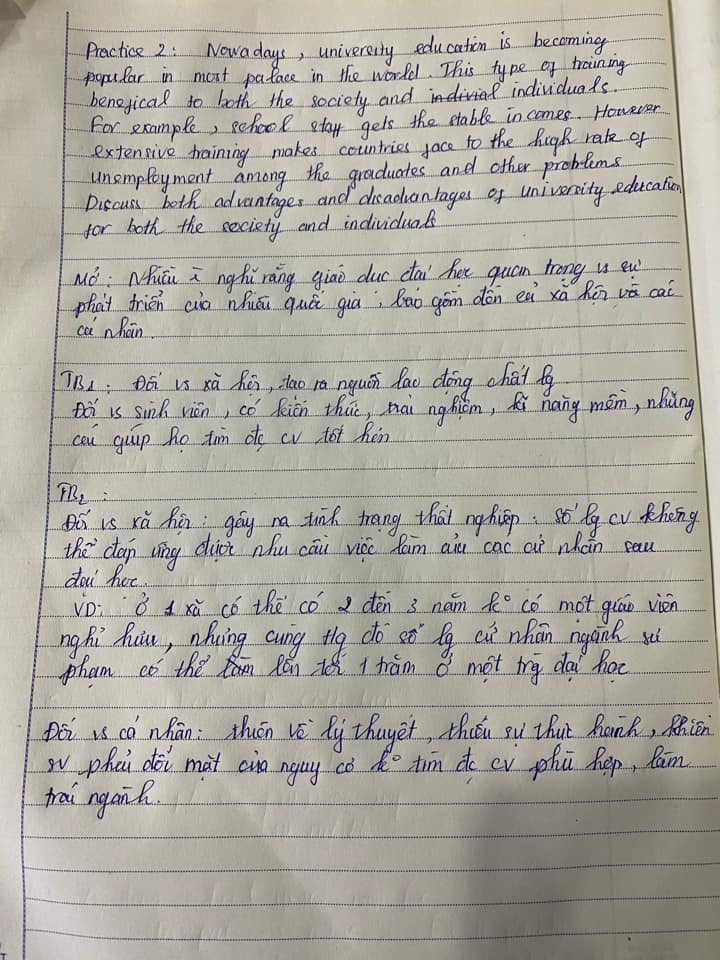 Practice 2: Nowadays, university education is becoming
popular in most palace in the world. This type of training
benefical to both the society and indivial individuals.
For example, school stay gets the stable incomes. However
extensive training makes countries face to the high rate of
unemployment among the graduates and other problems
Discuss both advantages and disadvantages of university education
for both the society and individuals
Mở: Nhiều nghĩ rằng giáo dục đại học quan trọng vs sự
phát triển của nhiều quốc gia, bao gồm đến cả xã hội và các
cá nhân.
TB1: Đối vs xã hội, tạo ra nguồn lao động chất lg
Đối vs sinh viên, có kiến thức, trải nghiệm, kĩ năng mềm, những
cái giúp họ tìm đc cv tốt hơn
TB2:
Đối vs xã hội: gây ra tình trạng thất nghiệp: số lg cv không
thể đáp ứng được nhu cầu việc làm của các cử nhân sau
đại học.
VD: Ở 1 xã có thể có 2 đến 3 năm ko có một giáo viên
nghỉ hưu, nhưng cùng tg đó số lg cử nhân ngành sư
phạm có thể lên tới 1 trăm ở một trg đại học
Đối vs cá nhân: thiên về lý thuyết, thiếu sự thực hành, khiến
sv phải đối mặt của nguy cơ ko tìm đc cv phù hợp, làm
trái ngành.